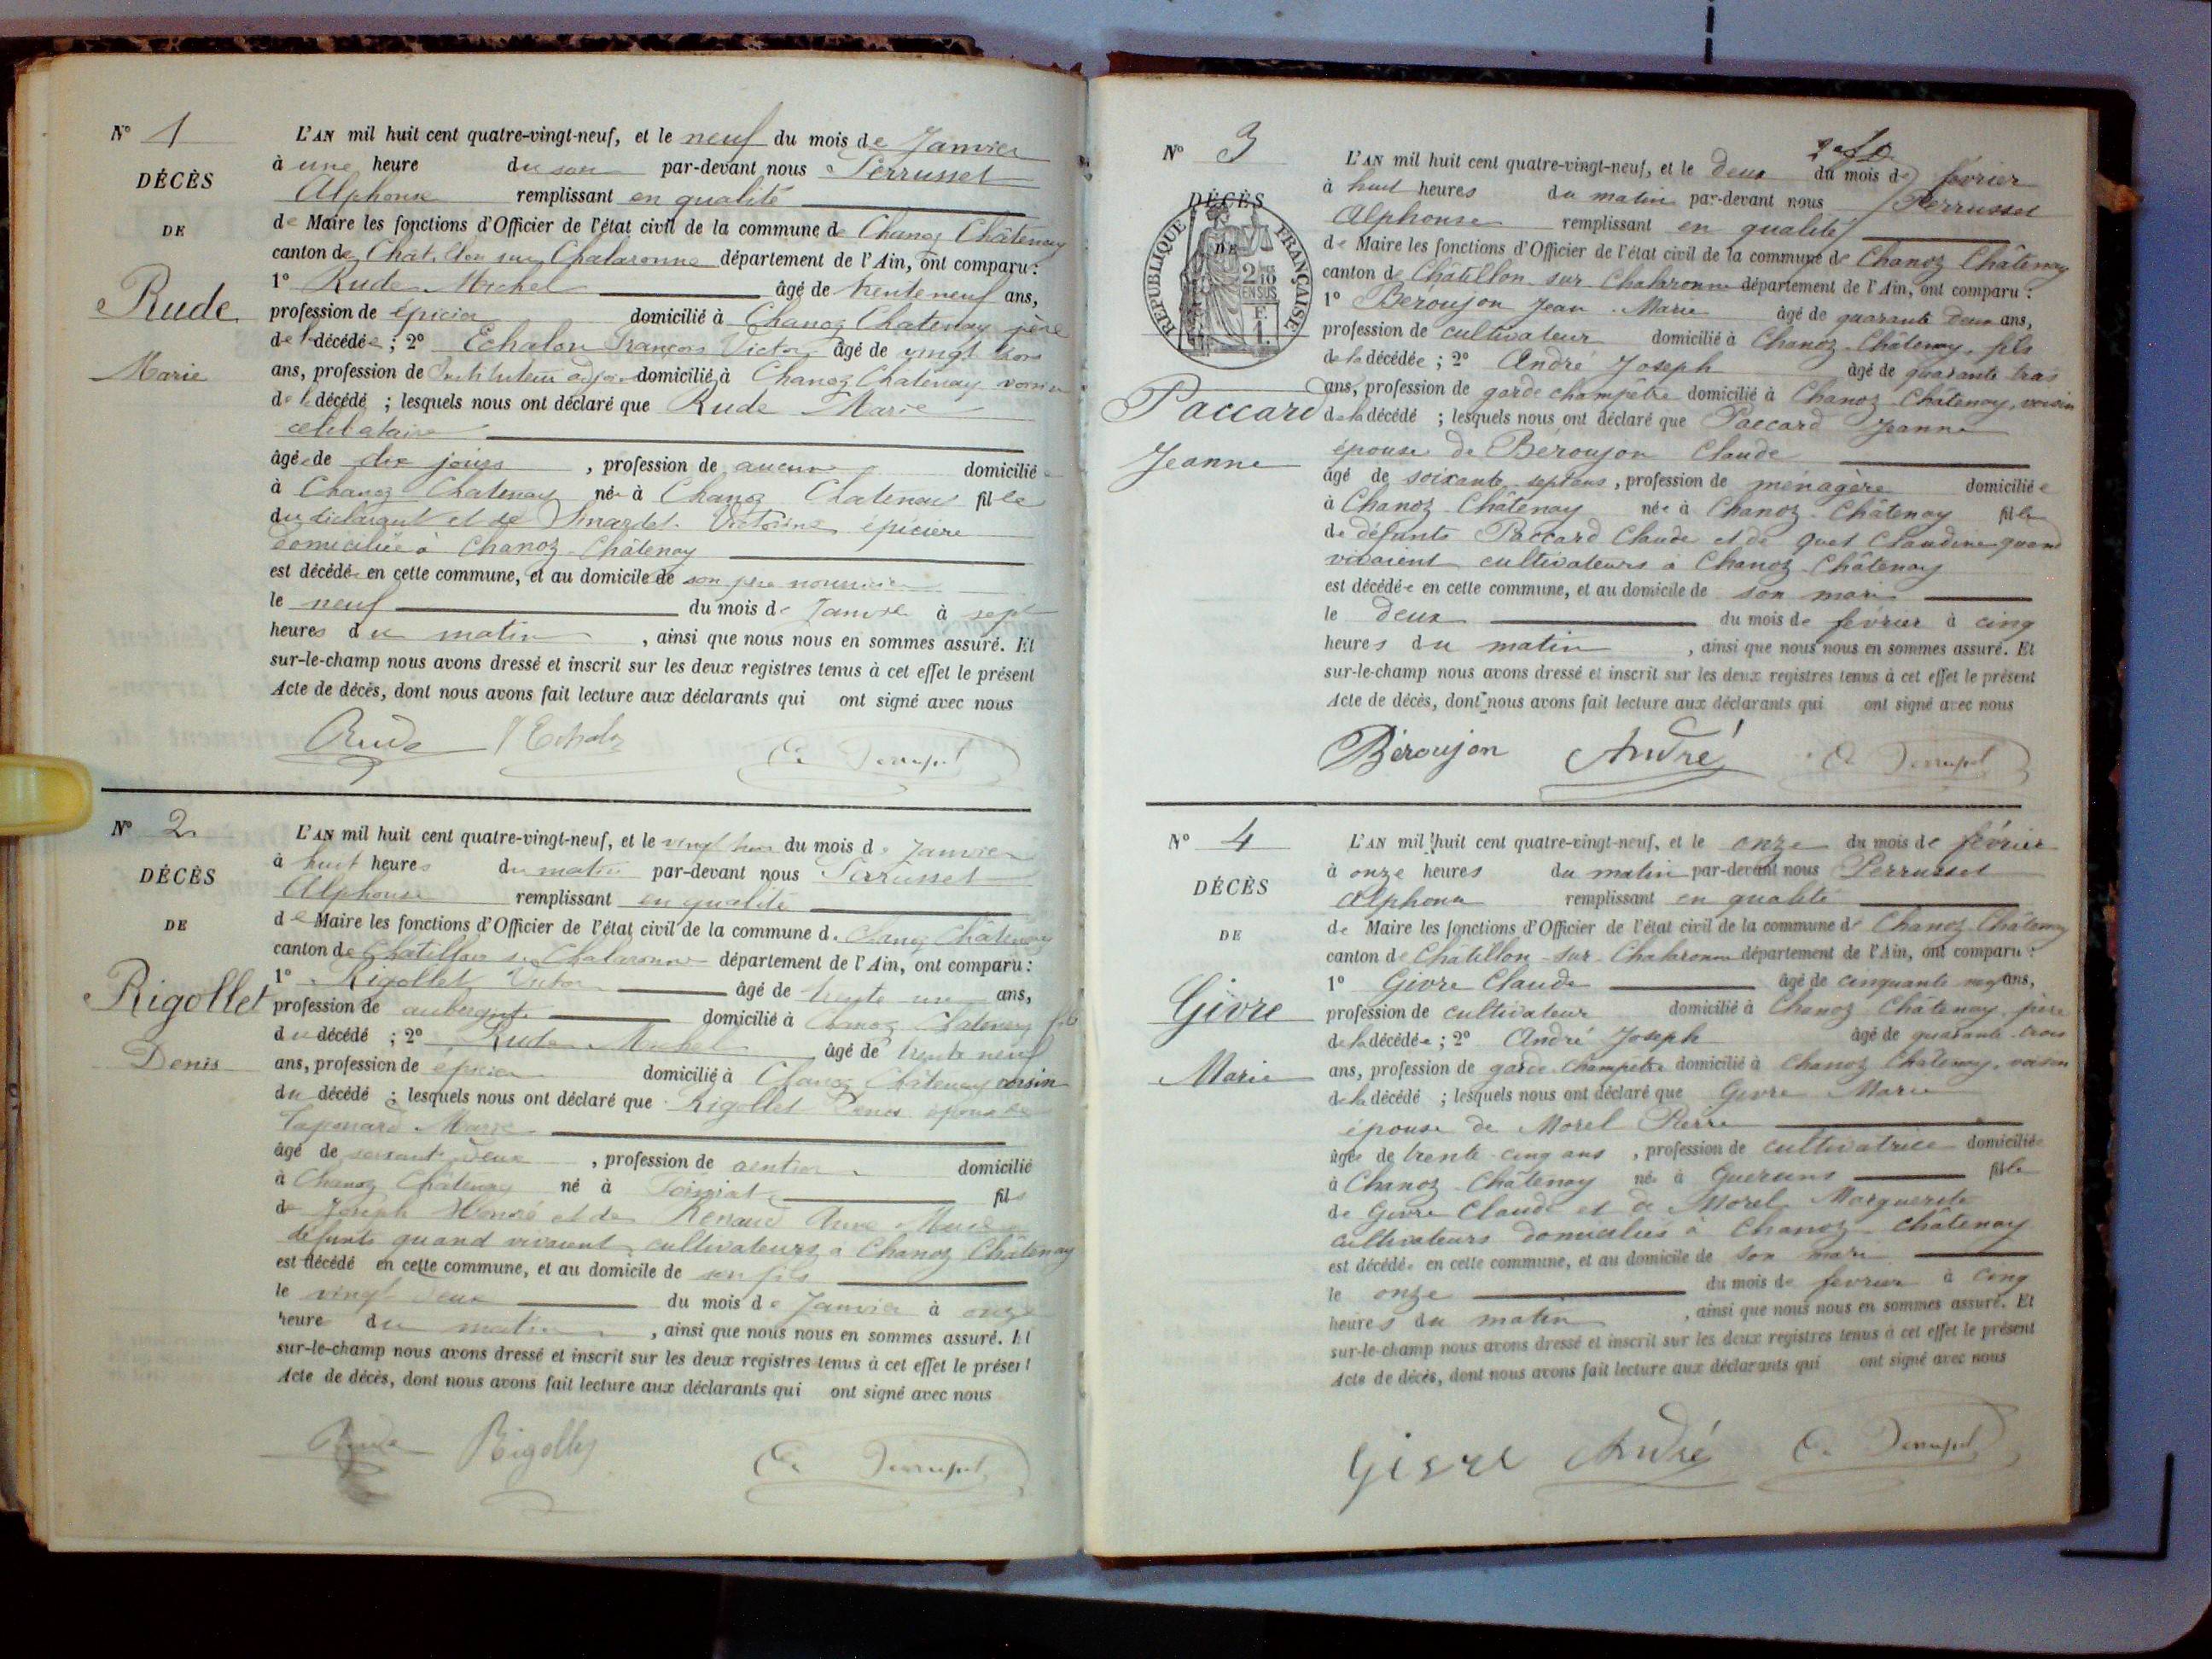 N° 1
DÉCÈS
DE
Rude
Marie
L'AN mil huit cent quatre-vingt-neuf, et le neuf du mois de Janvier
à une heure du soir par-devant nous Perrusset
Alphonse remplissant en qualité
de Maire les fonctions d'Officier de l'état civil de la commune de Chanoz Châtenay
canton de Châtillon sur Chalaronne département de l'Ain, ont comparu :
1° Rude Michel âgé de trente neuf ans,
profession de épicier domicilié à Chanoz Chatenay père
de la décédée ; 2° Echalon François Victor âgé de vingt trois
ans, profession de Instituteur adjoint domicilié à Chanoz Chatenay voisin
de la décédé ; lesquels nous ont déclaré que Rude Marie
célibataire
âgée de dix jours , profession de aucune domiciliée
à Chanoz Chatenay née à Chanoz Chatenay fille
du déclarant et de Victorine épicière
domiciliée à Chanoz-Châtenay
est décédée en cette commune, et au domicile de son père nourricier
le neuf du mois de Janvier à sept
heures du matin , ainsi que nous nous en sommes assuré. Et
sur-le-champ nous avons dressé et inscrit sur les deux registres tenus à cet effet le présent
Acte de décès, dont nous avons fait lecture aux déclarants qui ont signé avec nous
Rude
N° 2
DÉCÈS
DE
Rigollet
Denis
L'AN mil huit cent quatre-vingt-neuf, et le vingt trois du mois de Janvier
à huit heures du matin par-devant nous Perrusset
Alphonse remplissant en qualité
de Maire les fonctions d'Officier de l'état civil de la commune de Chanoz Châtenay
canton de Chatillon sur Chalaronne département de l'Ain, ont comparu :
1° Rigollet Victor âgé de trente un ans,
profession de aubergiste domicilié à Chanoz Chatenay fils
du décédé ; 2° Rude Michel âgé de trente neuf
ans, profession de épicier domicilié à Chanoz Châtenay voisin
du décédé ; lesquels nous ont déclaré que Rigollet Denis époux de
Taponard Marie
âgé de soixante deux , profession de rentier domicilié
à Chanoz Châtenay né à fils
de Joseph Honoré et de Renaud Anne Marie
défunts quand vivaient cultivateurs à Chanoz Châtenay
est décédé en cette commune, et au domicile de son fils
le vingt deux du mois de Janvier à onze
heure du matin , ainsi que nous nous en sommes assuré. Et
sur-le-champ nous avons dressé et inscrit sur les deux registres tenus à cet effet le présent
Acte de décès, dont nous avons fait lecture aux déclarants qui ont signé avec nous
Rude Rigollet
N° 3
DÉCÈS
DE
RÉPUBLIQUE FRANÇAISE
2/10 EN SUS
Paccard
Jeanne
L'AN mil huit cent quatre-vingt-neuf, et le deux du mois de février
à huit heures du matin par-devant nous Perrusset
Alphonse remplissant en qualité
de Maire les fonctions d'Officier de l'état civil de la commune de Chanoz Châtenay
canton de Châtillon-sur-Chalaronne département de l'Ain, ont comparu :
1° Beroujon Jean-Marie âgé de quarante deux ans,
profession de cultivateur domicilié à Chanoz-Châtenay, fils
de la décédée ; 2° André Joseph âgé de quarante trois
ans, profession de garde champêtre domicilié à Chanoz-Châtenay, voisin
de la décédé ; lesquels nous ont déclaré que Paccard Jeanne
épouse de Béroujon Claude
âgé de soixante-sept ans, profession de ménagère domiciliée
à Chanoz-Châtenay née à Chanoz-Châtenay fille
de défunts Paccard Claude et de Claudine quand
vivaient cultivateurs à Chanoz-Châtenay
est décédée en cette commune, et au domicile de son mari
le deux du mois de février à cinq
heures du matin , ainsi que nous nous en sommes assuré. Et
sur-le-champ nous avons dressé et inscrit sur les deux registres tenus à cet effet le présent
Acte de décès, dont nous avons fait lecture aux déclarants qui ont signé avec nous
Béroujon André
N° 4
DÉCÈS
DE
Givre
Marie
L'AN mil huit cent quatre-vingt-neuf, et le onze du mois de février
à onze heures du matin par-devant nous Perrusset
Alphonse remplissant en qualité
de Maire les fonctions d'Officier de l'état civil de la commune de Chanoz Châtenay
canton de Châtillon-sur-Chalaronne département de l'Ain, ont comparu :
1° Givre Claude âgé de cinquante ans,
profession de cultivateur domicilié à Chanoz Châtenay, père
de la décédée ; 2° André Joseph âgé de quarante-trois
ans, profession de garde-champêtre domicilié à Chanoz Châtenay, voisin
de la décédé ; lesquels nous ont déclaré que Givre Marie
épouse de Morel Pierre
âgée de trente-cinq ans , profession de cultivatrice domiciliée
à Chanoz-Châtenay née à fille
de Givre Claude et de Morel Marguerite
cultivateurs domiciliés à Chanoz-Châtenay
est décédée en cette commune, et au domicile de son mari
le onze du mois de fevrier à cinq
heures du matin , ainsi que nous nous en sommes assuré. Et
sur-le-champ nous avons dressé et inscrit sur les deux registres tenus à cet effet le présent
Acte de décès, dont nous avons fait lecture aux déclarants qui ont signé avec nous
Givre André